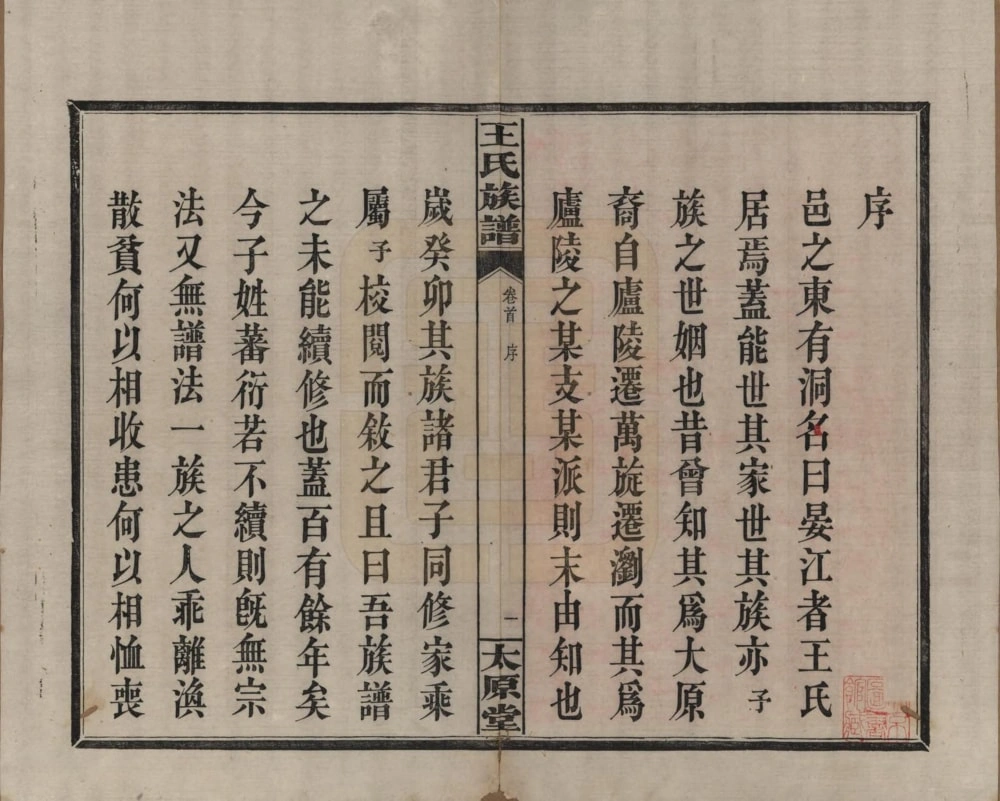 序
邑之東有洞名曰晏江者王氏
居焉蓋能世其家世其族亦子
族之世姻也昔曾知其爲大原
裔自廬陵遷萬旋遷瀏而其爲
廬陵之某支某派則末由知也
王氏族譜
卷首 序
一
太原堂
歲癸卯其族諸君子同修家乘
屬子校閱而敘之且曰吾族譜
之未能續修也蓋百有餘年矣
今子姓蕃衍若不續則旣無宗
法又無譜法一族之人乖離渙
散貧何以相收患何以相恤喪